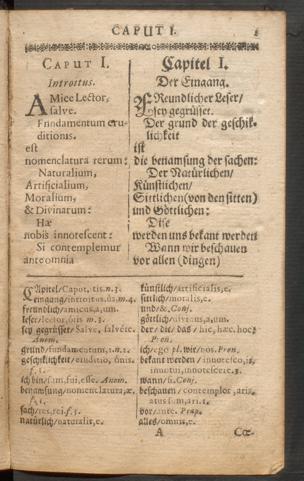 CAPUT I.
CAPUT I.
Introitus.
AMice Lector,
salve.
Fundamentum eru-
ditionis.
est
nomenclatura rerum:
Naturalium,
Artificialium,
Moralium,
& Divinarum:
Hæ
nobis innotescent:
Si contemplemur
ante omnia
Capitel I.
Der Eingang.
FReundlicher Leser/
sey gegrüsset.
Der grund der geschik-
lichkeit
ist
die benamsung der sachen:
Der Natürlichen/
Künstlichen/
Sittlichen (von den sitten)
und Göttlichen:
Dise
werden uns bekant werden
Wann wir beschauen
vor allen (dingen)
CApitel/Caput, tis. n. 3.
eingang/introitus, ûs, m. 4.
freundlich/amicus, a, um.
leser/lector, oris m. 3.
sey gegrüsset/Salve, salvéte.
Anom.
grund/fundamentum, i. n. 2.
geschicklichkeit/eruditio, ônis.
f. 3.
ich bin/sum, fui, esse. Anom.
benamsung/nomenclatura, æ,
f. 1.
sach/res, rei. f. 5.
natürlich/naturalis, e.
künstlich/artificialis, e.
sittlich/moralis, e.
und/&, Conj.
göttlich/divinus, a, um.
der/die/das/hic, hæc, hoc,
Pron.
ich/ego pl. wir/nos. Pron.
bekant werden/innotesco, is,
innotui, innotescere. 3.
wann/si. Conj.
beschauen/contemplor, aris,
atus sum, ari. 1.
vor/ante. Præp.
alles/omnis, e.
A
Cœ-